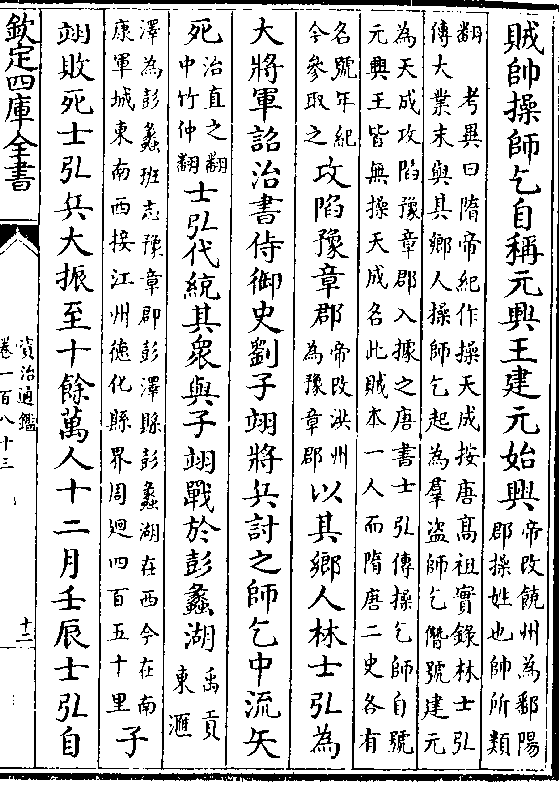 賊帥操師乞自稱元興王建元始興帝改饒州為鄱陽郡操姓也帥所類
翻　考異曰隋帝紀作操天成按唐髙祖實錄林士弘
傳大業末與其鄉人操師乞起為羣盜師乞僭號建元
為天成攻陷豫章郡入據之唐書士弘傳操乞師自號
元興王皆無操天成名此賊本一人而隋唐二史各有
名號年紀今參取之攻陷豫章郡帝改洪州為豫章郡以其鄉人林士弘為
大將軍詔治書侍御史劉子翊將兵討之師乞中流矢
死治直之翻中竹仲翻士弘代統其衆與子翊戰於彭蠡湖禹貢東滙
澤為彭蠡班志豫章郡彭澤縣彭蠡湖在西今在南
康軍城東南西接江州德化縣界周迴四百五十里子
翊敗死士弘兵大振至十餘萬人十二月壬辰士弘自
欽定四庫全書
資治通鑑
卷一百八十三
十二